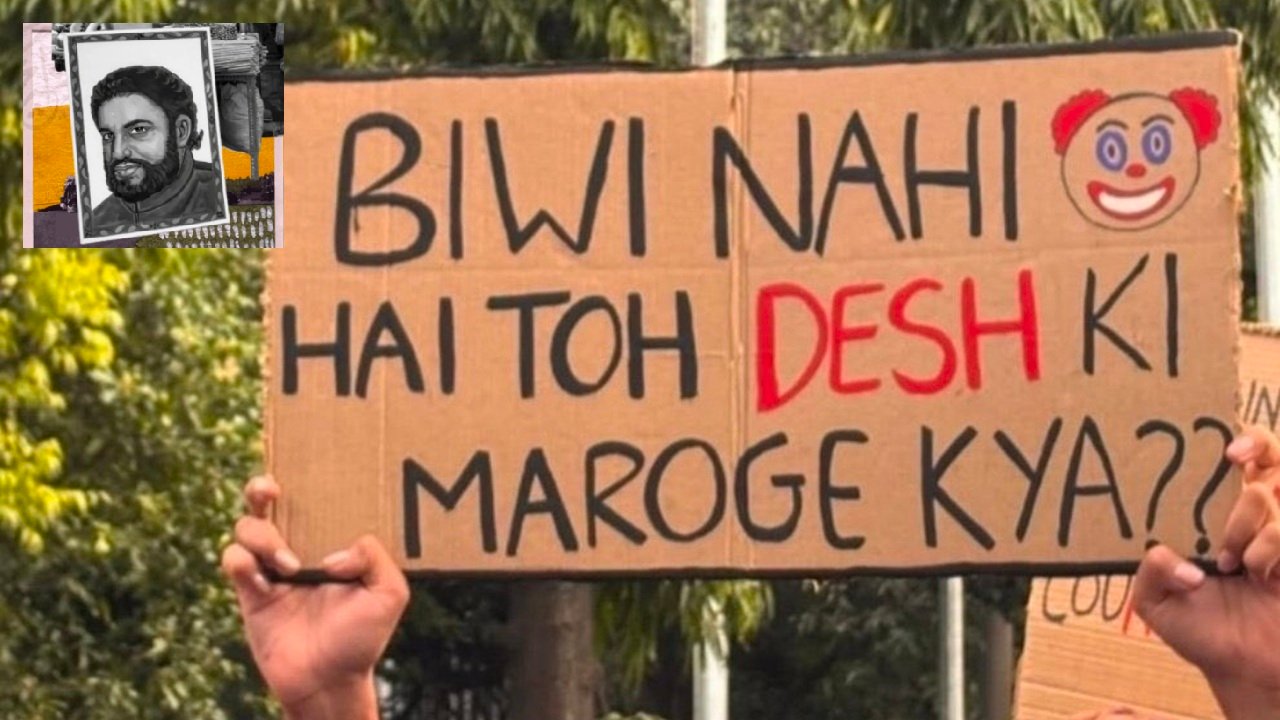 BIWI NAHI
HAI TOH DESH KI
MAROGE KYA??
IN
COU